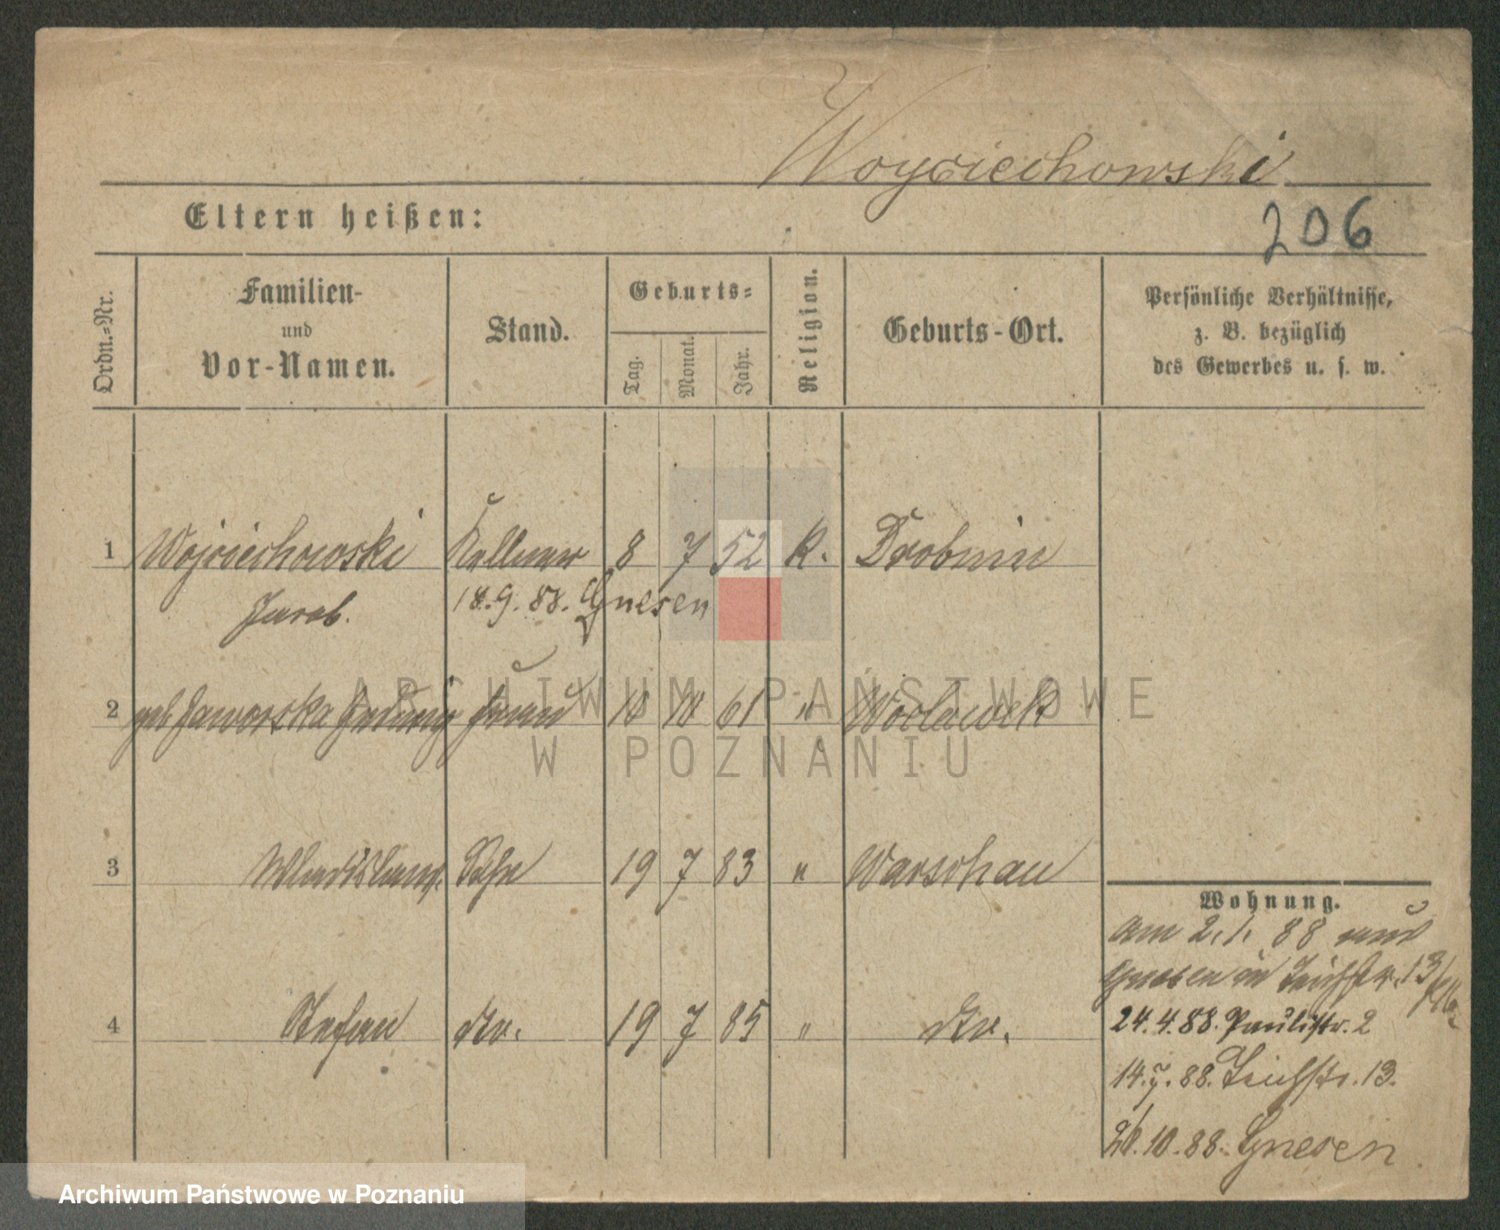 Woyciechowski
Eltern heißen:
206
Ordn.=Nr.
Familien-
und
Vor-Namen.
Stand.
Geburts=
Tag.
Monat.
Jahr.
Religion.
Geburts-Ort.
Persönliche Verhältnisse,
z. B. bezüglich
des Gewerbes u. s. w.
1 Wojciechowski Kellner 8 7 52 K. Drobnin
Jacob. 18.9.88. Gnesen
2 geb Jaworska Hedwig Frau 18 10 61 " Wloclawek
3 Wladislaus. Sohn 19 7 83 " Warschau
4 Stefan do. 19 7 85 " do.
Wohnung.
am 2.1.88 aus
Gnesen in Teichstr. 13
24.4.88. Paulistr. 2
14.7.88. Teichstr. 13.
20.10.88. Gnesen
ARCHIWUM PAŃSTWOWE
W POZNANIU
Archiwum Państwowe w Poznaniu